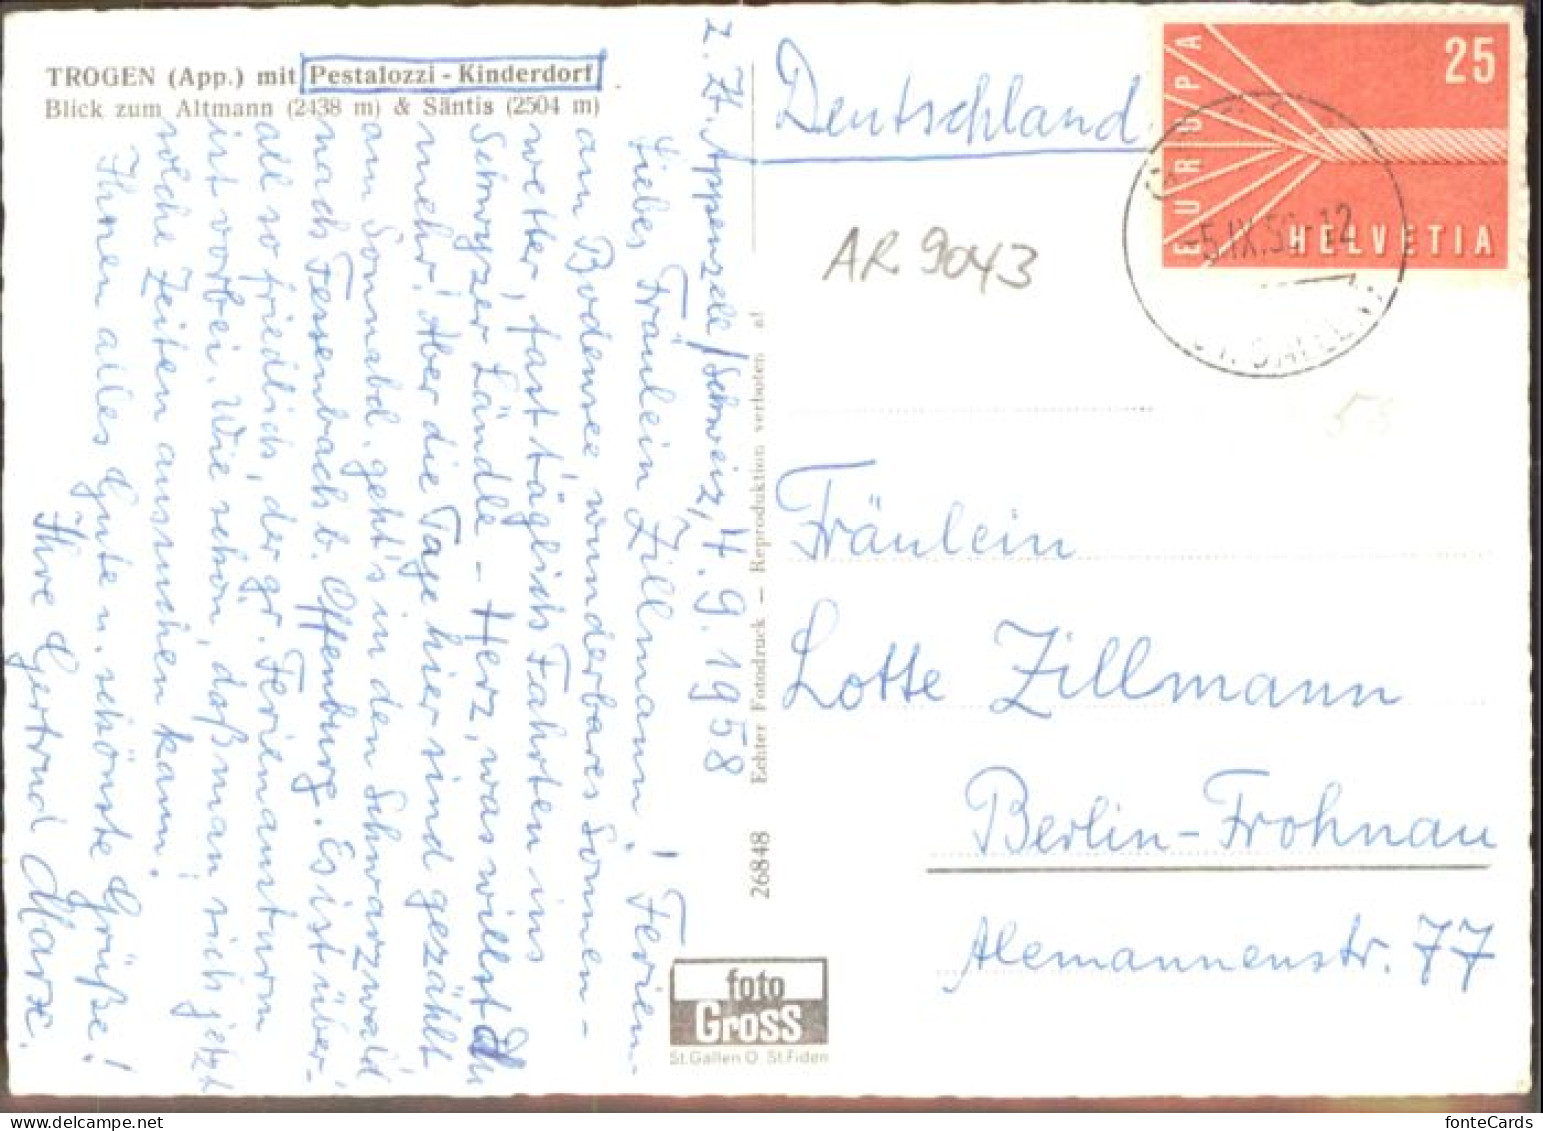 TROGEN (App.) mit Pestalozzi - Kinderdorf
Blick zum Altmann (2438 m) & Säntis (2504 m)
z. Zt. Appenzell/Schweiz, 4. 9. 1958
Liebes Fräulein Zillmann! Ferien
am Bodensee, wunderbares Sonnen-
wetter, fast täglich Fahrten ins
Schwyzer Ländle - Herz, was willst Du
mehr! Aber die Tage hier sind gezählt
am Sonnabd. geht's in den Schwarzwald
nach Fessenbach b. Offenburg. Es ist über-
all so friedlich, der gr. Ferienansturm
ist vorbei. Wie schön, daß man sich jetzt
solche Zeiten aussuchen kann!
Ihnen alles Gute u. schönste Grüße!
Ihre Gertrud Marx.
Echter Fotodruck — Reproduktion verboten
26848
foto
Gross
St.Gallen O. St.Fiden
EUROPA
25
HELVETIA
-5.IX.58-12
ST. GALLEN
Deutschland
AR 9043
58
Fräulein
Lotte Zillmann
Berlin-Frohnau
Alemannenstr. 77
fonteCards